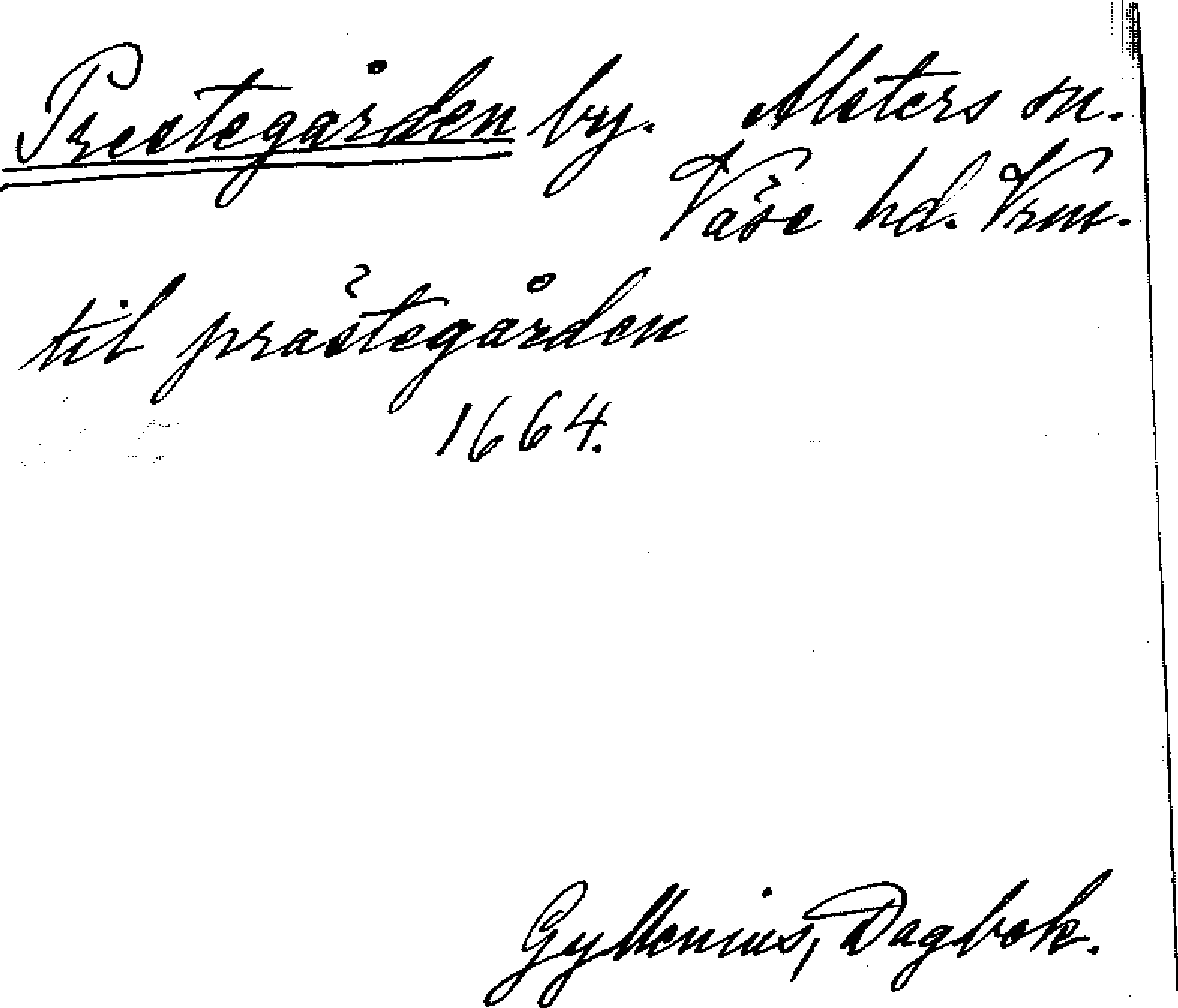 Prestegården by. Alsters sn.
Väse hd. Vrm.
til prästegården
1664.
Gyllenius, Dagbok.